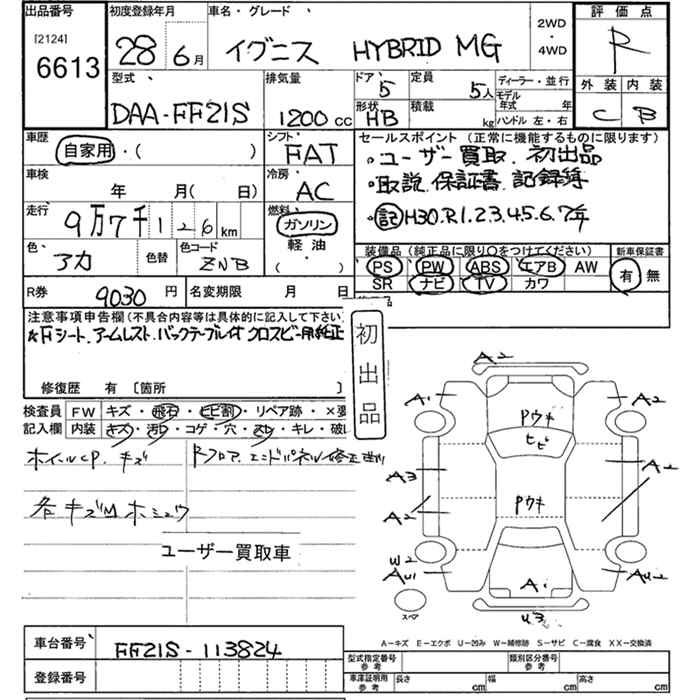 出品番号
[2124]
6613
初度登録年月
28年6月
車名・グレード
イグニス HYBRID MG
2WD
・
4WD
評価点
R
外装 内装
C B
型式
DAA-FF21S
排気量
1200cc
ドア 5
形状 HB
定員 5人
積載 kg
ディーラー・並行
モデル年式 年
ハンドル 左・右
車歴
自家用・( )
シフト
FAT
車検
年 月( 日)
冷房
AC
走行
9万7千126km
燃料
ガソリン
軽油
( )
色
アカ
色替
色コード
ZNB
セールスポイント(正常に機能するものに限ります)
・ユーザー買取、初出品
・取説、保証書、記録簿
・記H30.R1.2.3.4.5.6.7年
装備品(純正品に限り○をつけてください)
PS PW ABS エアB AW
SR ナビ TV カワ
新車保証書
有 無
R券 9030円
名変期限 月 日
注意事項申告欄(不具合内容等は具体的に記入して下さい
Fシート、アームレスト、バックテーブル付 クロスビー用純正
修復歴 有 〔箇所 〕
初出品
検査員記入欄
FW キズ・飛石・ヒビ割・リペア跡・×要
内装 キズ・汚れ・コゲ・穴・スレ・キレ・破れ
ホイールCP、キズ
Rフロア、エンドパネル修正
各キズ
ユーザー買取車
A2
A1 A2
Pウキ
ヒビ
A3
A2
Pウキ
W2
AU1 AU2
A1
U3
スペア
A−キズ E−エクボ U−凹み W−補修跡 S−サビ C−腐食 XX−交換済
車台番号 FF21S-113824
登録番号
型式指定番号 参考
類別区分番号 参考
車庫証明用 参考
長さ cm 幅 cm 高さ cm